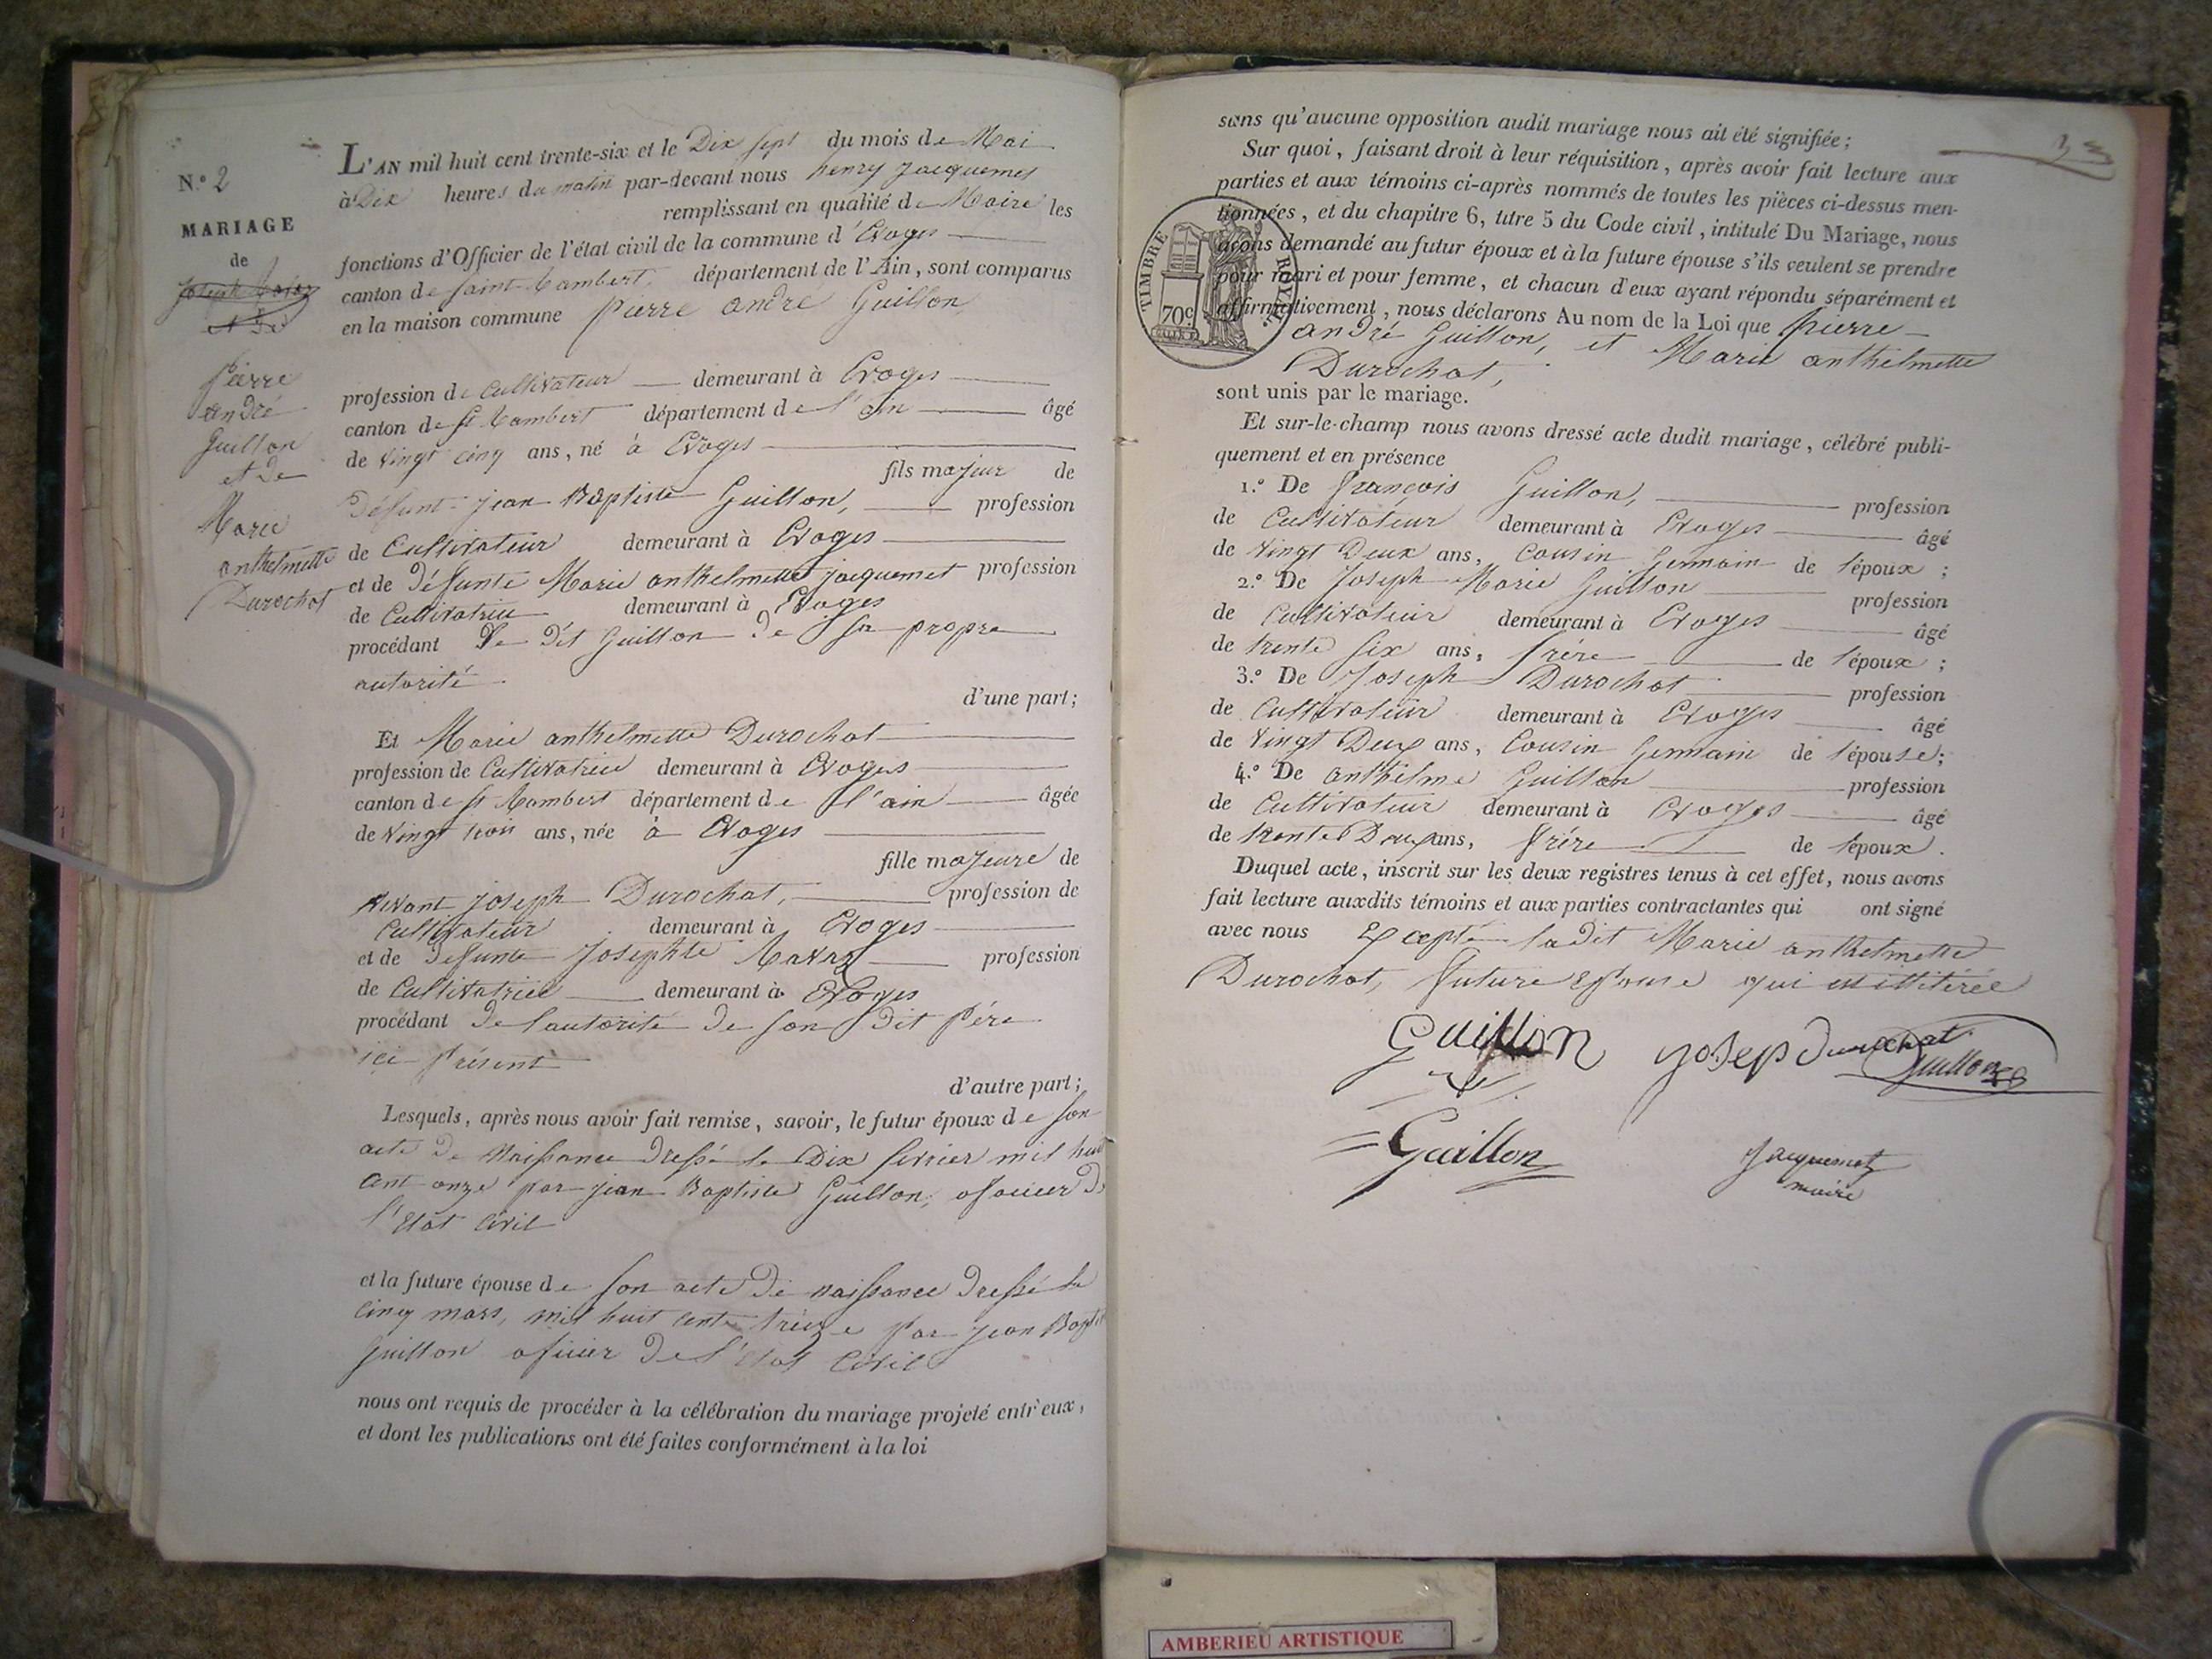 N.º 2
MARIAGE
de
Pierre
andré
Guillon
et de
Marie
anthelmette
Durochat
L'AN mil huit cent trente-six et le Dix sept du mois de Mai
à Dix heures du matin par-devant nous henry Jacquemet
remplissant en qualité de Maire les
fonctions d'Officier de l'état civil de la commune d'Evoges
canton de Saint-Rambert, département de l'Ain, sont comparus
en la maison commune Pierre andré Guillon,
profession de Cultivateur demeurant à Evoges
canton de St Rambert département de l'ain âgé
de vingt cinq ans, né à Evoges
fils majeur de
Défunt Jean Baptiste Guillon, profession
de Cultivateur demeurant à Evoges
et de Défunte Marie anthelmette jacquemet profession
de Cultivatrice demeurant à Evoges
procédant le dit Guillon de sa propre
autorité.
d'une part;
Et Marie anthelmette Durochat
profession de Cultivatrice demeurant à Evoges
canton de St Rambert département de l'ain âgée
de vingt trois ans, née à Evoges
fille majeure de
vivant joseph Durochat, profession de
Cultivateur demeurant à Evoges
et de defunte Josephte Ravaz profession
de Cultivatrice demeurant à Evoges
procédant de l'autorité de son dit Père
ici Présent
d'autre part;
Lesquels, après nous avoir fait remise, savoir, le futur époux de son
acte de Naissance dressé le Dix fevrier mil huit
cent onze par jean Baptiste Guillon, oficier de
l'Etat Civil
et la future épouse de son acte de naissance dressé le
Cinq mars, mil huit cent treize par jean Baptis
Guillon oficier de l'Etat Civil
nous ont requis de procéder à la célébration du mariage projeté entr'eux,
et dont les publications ont été faites conformément à la loi
33
sans qu'aucune opposition audit mariage nous ait été signifiée;
Sur quoi, faisant droit à leur réquisition, après avoir fait lecture aux
parties et aux témoins ci-après nommés de toutes les pièces ci-dessus men-
tionnées, et du chapitre 6, titre 5 du Code civil, intitulé Du Mariage, nous
avons demandé au futur époux et à la future épouse s'ils veulent se prendre
pour mari et pour femme, et chacun d'eux ayant répondu séparément et
affirmativement, nous déclarons Au nom de la Loi que Pierre
andré Guillon, et Marie anthelmette
Durochat,
sont unis par le mariage.
TIMBRE ROYAL.
70c
Et sur-le-champ nous avons dressé acte dudit mariage, célébré publi-
quement et en présence
1.º De François Guillon, profession
de Cultivateur demeurant à Evoges âgé
de vingt Deux ans, Cousin Germain de l'époux;
2.º De Joseph Marie Guillon profession
de Cultivateur demeurant à Evoges âgé
de trente six ans, frère de l'époux;
3.º De Joseph Durochat profession
de Cultivateur demeurant à Evoges âgé
de Vingt Deux ans, Cousin Germain de l'épouse;
4.º De anthelme Guillon profession
de Cultivateur demeurant à Evoges âgé
de trente Deux ans, frère de l'époux.
Duquel acte, inscrit sur les deux registres tenus à cet effet, nous avons
fait lecture auxdits témoins et aux parties contractantes qui ont signé
avec nous Excepté ladit Marie anthelmette
Durochat, future Epouse qui est illitérée
Guillon josep Durochat
Guillon
Guillon Jacquemet
maire
AMBERIEU ARTISTIQUE